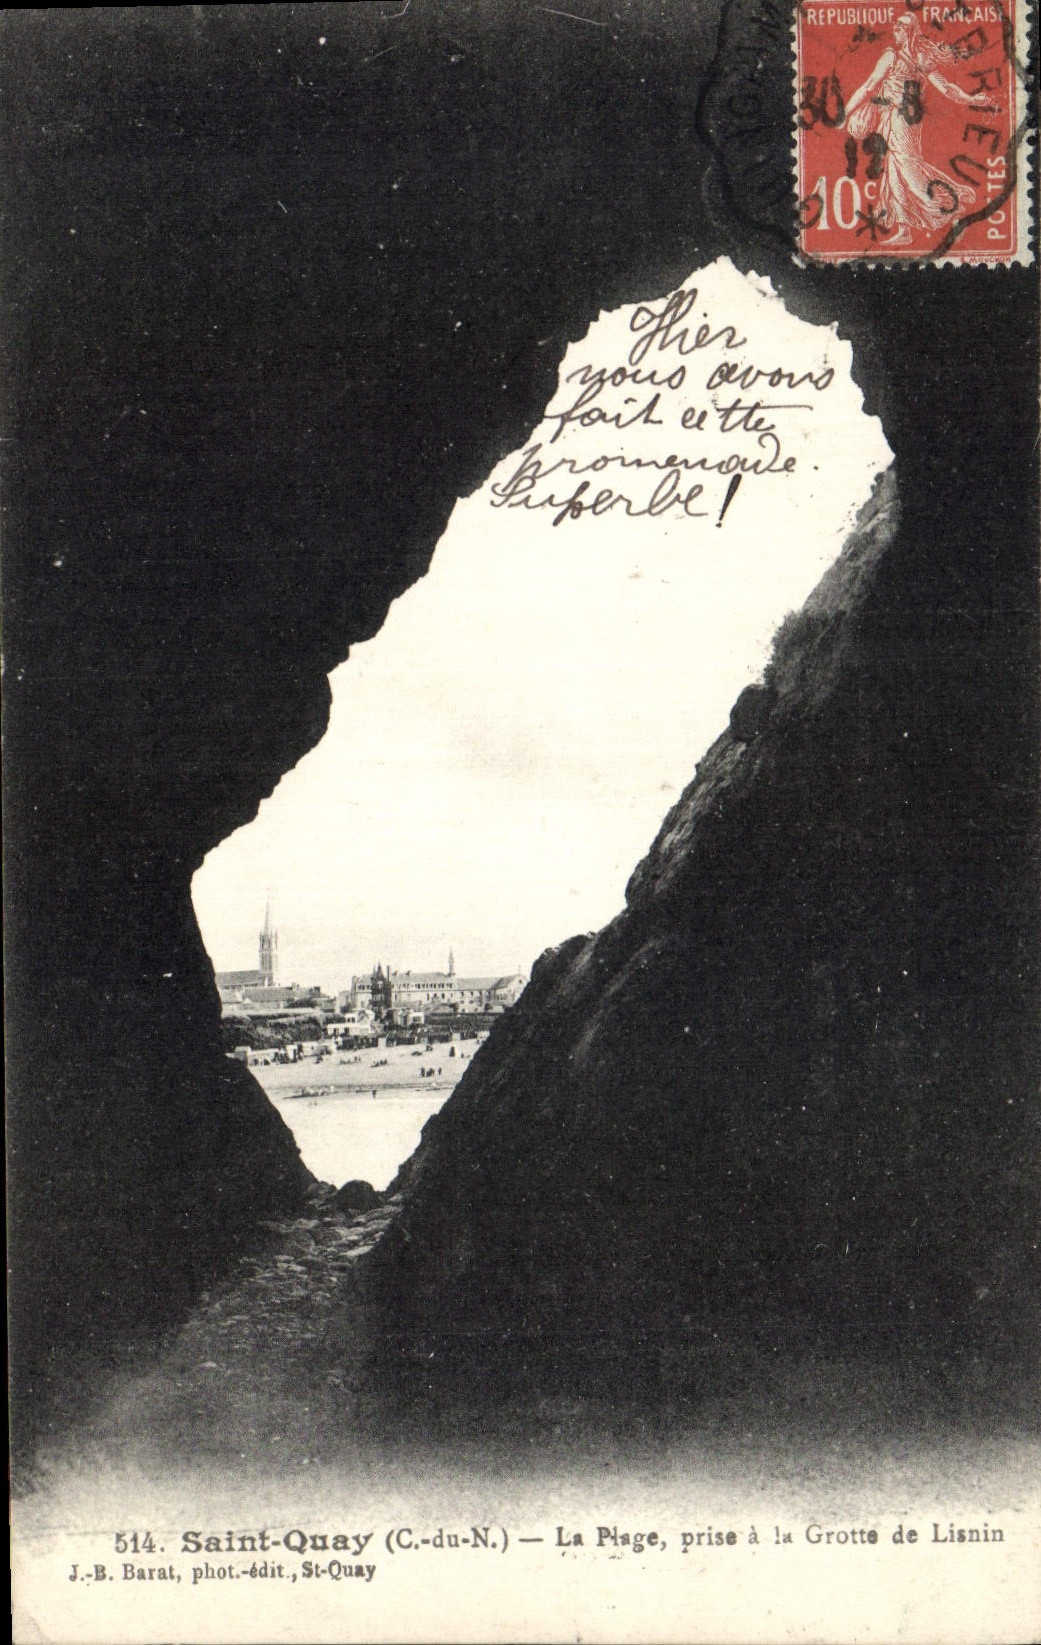 REPUBLIQUE FRANÇAISE
BRIEUC
30 -8
12
10c
POSTES
Hier
nous avons
fait cette
promenade.
Superbe!
514. Saint-Quay (C.-du-N.) — La Plage, prise à la Grotte de Lisnin
J.-B. Barat, phot.-édit., St-Quay